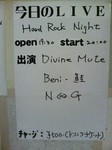 今日のLIVE
Hard Rock Night
open start
出演 Divine Mute
Beni-
N⇔G
チャージ: